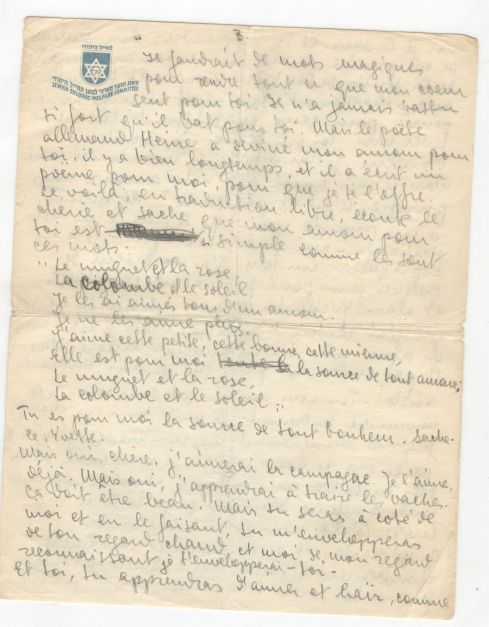 3
לחייל היהודי
JEWISH SOLDIERS WELFARE COMMITTEE
Je faudrait de mots magiques
pour rendre tout ce que mon coeur
sent pour toi. Il n'a jamais battu
si fort qu'il bat pour toi. Mais le poète
allemand Heine a deviné mon amour pour
toi, il y a bien longtemps, et il a écrit un
poème, pour moi, pour que je te l'offre.
Le voilà, en traduction libre, écoute le
cherie et sache que mon amour pour
toi est si simple comme les sont
ces mots.
"Le muguet et la rose,
La colombe et le soleil
Je les ai aimés tous d'un amour.
Je ne les aime plus,
J'aime cette petite, cette bonne, cette mienne,
Elle est pour moi la source de tout amour;
Le muguet et la rose,
La colombe et le soleil"
Tu es pour moi la source de tout bonheur. Sache-
le, Yvette.
Mais oui, chere, j'aimerai la campagne je l'aime,
déjà. Mais oui, j'apprendrai à traire les vaches.
Ça doit etre beau. Mais tu seras à coté de
moi et en le faisant, tu m'envelopperas
de ton regard chaud et moi de mon regard
reconnaissant je t'envelopperai - toi -
Et toi, tu apprendras d'aimer et haïr, comme